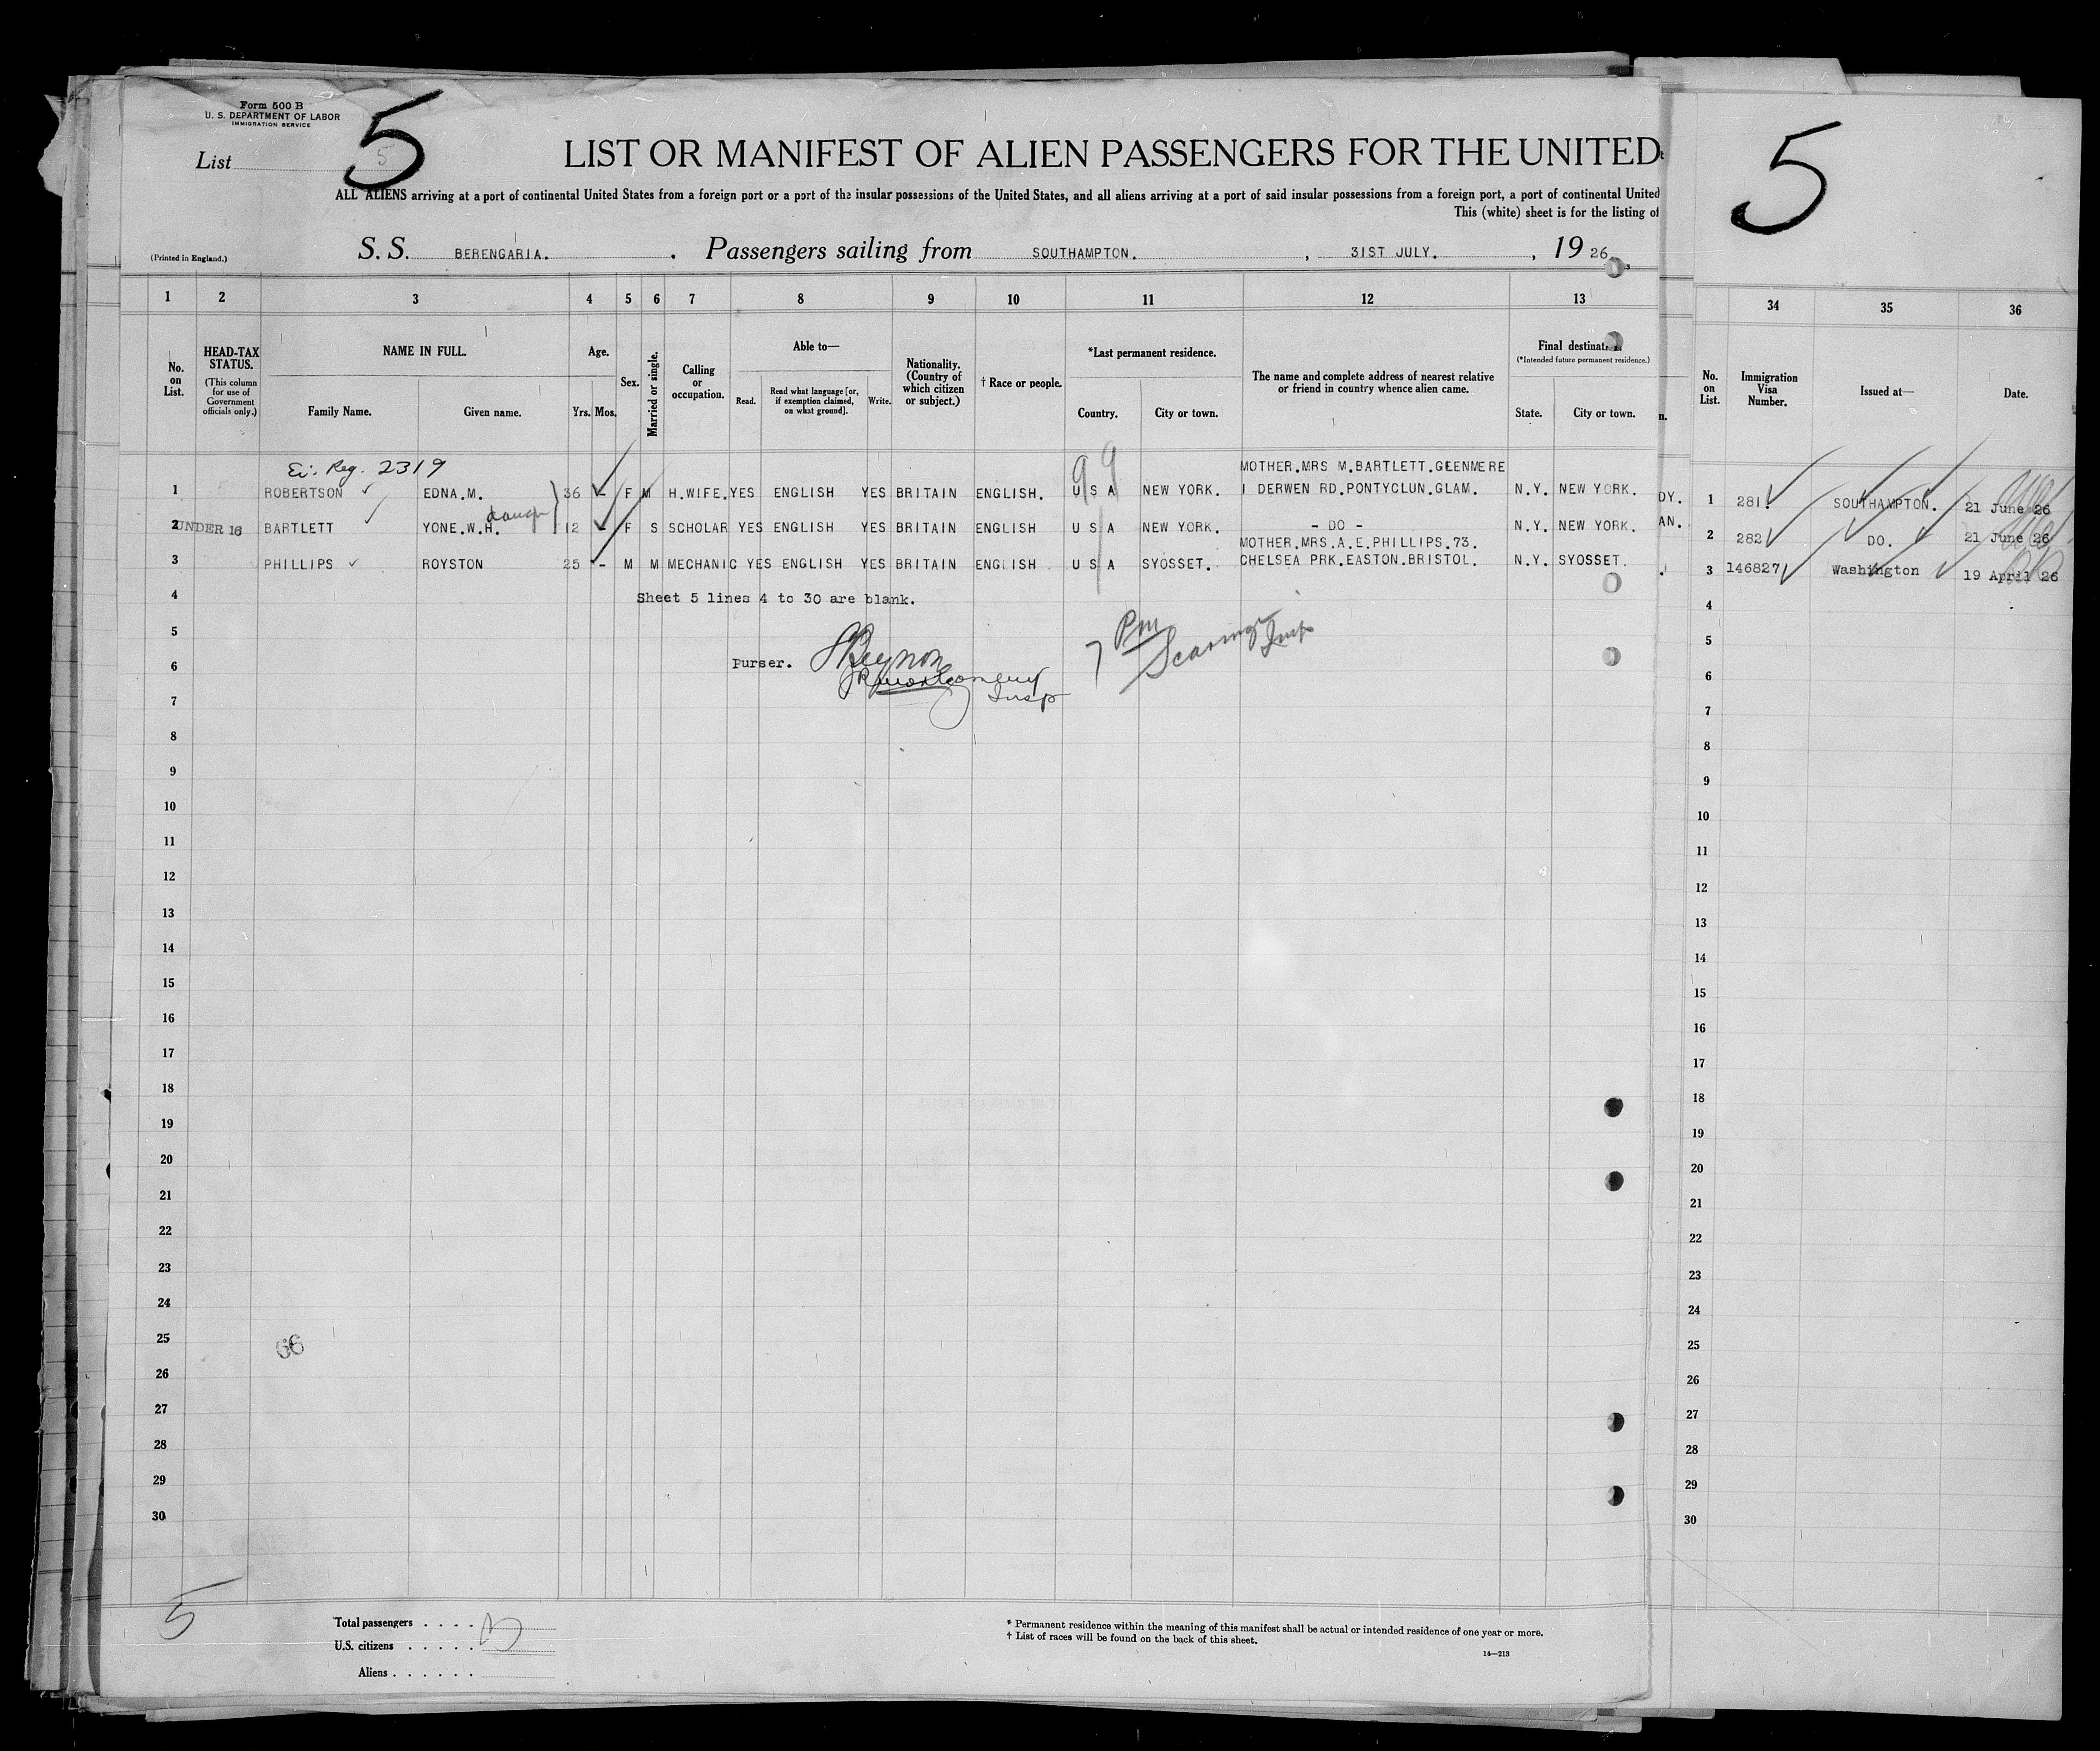 Form 500 B
U. S. DEPARTMENT OF LABOR
IMMIGRATION SERVICE
List 5
5
LIST OR MANIFEST OF ALIEN PASSENGERS FOR THE UNITED
ALL ALIENS arriving at a port of continental United States from a foreign port or a port of the insular possessions of the United States, and all aliens arriving at a port of said insular possessions from a foreign port, a port of continental United
This (white) sheet is for the listing of
(Printed in England.)
S. S. BERENGARIA. Passengers sailing from SOUTHAMPTON. , 31ST JULY. , 19 26
1 2 3 4 5 6 7 8 9 10 11 12 13
No. on List.
HEAD-TAX STATUS.
(This column for use of Government officials only.)
NAME IN FULL.
Family Name. Given name.
Age.
Yrs. Mos.
Sex.
Married or single.
Calling or occupation.
Able to—
Read. Read what language [or, if exemption claimed, on what ground]. Write.
Nationality. (Country of which citizen or subject.)
† Race or people.
*Last permanent residence.
Country. City or town.
The name and complete address of nearest relative or friend in country whence alien came.
Final destination
(*Intended future permanent residence.)
State. City or town.
Reg. 2319
99
MOTHER.MRS M.BARTLETT.GLENMERE
1 ROBERTSON EDNA.M. 36 - F M H.WIFE. YES ENGLISH YES BRITAIN ENGLISH. U S A NEW YORK. 1 DERWEN RD.PONTYCLUN.GLAM. N.Y. NEW YORK.
2 UNDER 16 BARTLETT YONE.W.H. 12 - F S SCHOLAR YES ENGLISH YES BRITAIN ENGLISH U S A NEW YORK. - DO - N.Y. NEW YORK.
MOTHER.MRS.A.E.PHILLIPS.73.
3 PHILLIPS ROYSTON 25 - M M MECHANIC YES ENGLISH YES BRITAIN ENGLISH U S A SYOSSET. CHELSEA PRK.EASTON.BRISTOL. N.Y. SYOSSET.
4 Sheet 5 lines 4 to 30 are blank.
5
6 Purser.
Insp
7
8
9
10
11
12
13
14
15
16
17
18
19
20
21
22
23
24
25
66
26
27
28
29
30
5
Total passengers
U.S. citizens
Aliens
* Permanent residence within the meaning of this manifest shall be actual or intended residence of one year or more.
† List of races will be found on the back of this sheet.
14—213
5
34 35 36
No. on List.
Immigration Visa Number.
Issued at—
Date.
DY.
AN.
1 281. SOUTHAMPTON. 21 June 26
2 282 DO. 21 June 26
3 146827 Washington 19 April 26
4
5
6
7
8
9
10
11
12
13
14
15
16
17
18
19
20
21
22
23
24
25
26
27
28
29
30